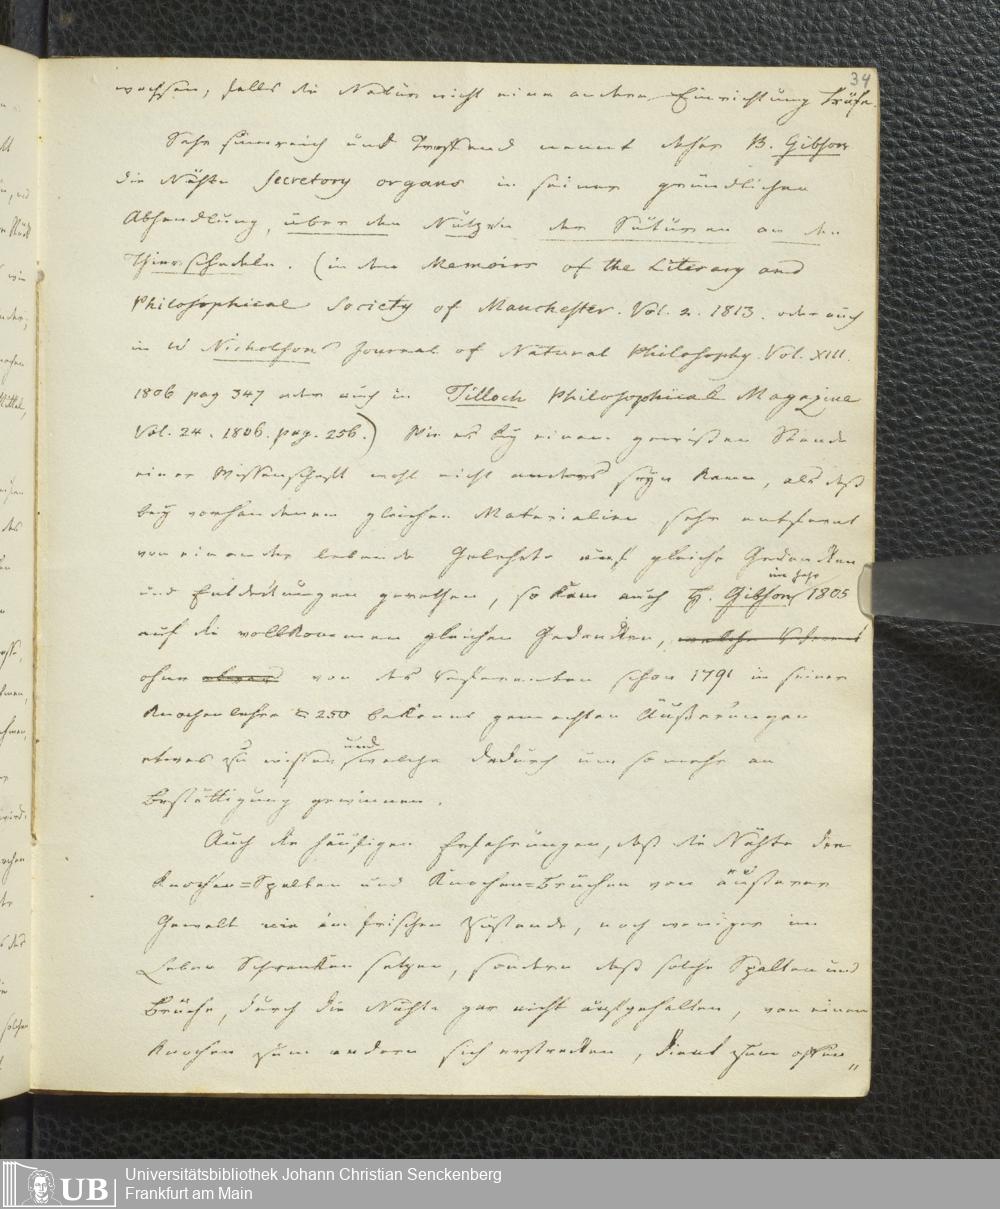 34
wachsen, falls die Natur nicht eine andere Einrichtung träfe.
Sehr sinnreich und treffend nennt daher B. Gibson
die Nähte Secretory organs in seiner gründlichen
Abhandlung, über den Nutzen der Suturen an den
Thierschädeln. (in den Memoirs of the Literary and
Philosophical Society of Manchester. Vol. 2. 1813. oder auch
in W Nicholson's Journal of Natural Philosophy. Vol. XIII.
1806 pag 347 oder auch in Tilloch Philosophical Magazine
Vol. 24. 1806. pag. 256.) Wie es bey einem gewissen Stande
einer Wissenschaft wohl nicht anders seyn kann, als daß
bey vorhandenen gleichen Materialien sehr entfernt
von einander lebende Gelehrte auf gleiche Gedanken
und Entdeckungen gerathen, so kam auch H. Gibson im Jahr 1805
auf die vollkommen gleichen Gedanken,
ohne von des Verfassers schon 1791 in seiner
Knochenlehre S 250 bekannt gemachten Äußerungen
etwas zu wissen, und welche dadurch um so mehr an
Bestättigung gewinnen.
Auch die häufigen Erfahrungen, daß die Nähte den
Knochen=Spalten und Knochen=Brüchen von äußerer
Gewalt wie im frischen Zustande, noch weniger im
Leben Schranken setzen, sondern daß solche Spalten und
Brüche, durch die Nähte gar nicht aufgehalten, von einem
Knochen zum andern sich erstrecken, dient zum offen„
UB
Universitätsbibliothek Johann Christian Senckenberg
Frankfurt am Main